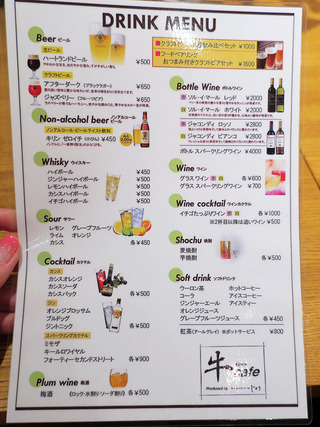 DRINK MENU
Beer ビール
生ビール
ハートランドビール ¥500
クラフトビール
アフターダーク(ブラックラガー)
ジャズベリー(フルーツビア) ¥650
Non-alcohol beer ノンアルコールビール
ノンアルコール・ビールテイスト飲料
キリン ゼロイチ (小びん) ¥450
Whisky ウイスキー
ハイボール ¥450
ジンジャーハイボール ¥500
コークハイボール ¥500
カシスハイボール ¥500
イチゴハイボール ¥500
Sour サワー
レモン グレープフルーツ
ライム オレンジ
カシス 各¥450
Cocktail カクテル
カシス
カシスオレンジ
カシスソーダ
カシスバック 各¥500
ジン
オレンジブロッサム
ブルドッグ
ジントニック 各¥500
スパークリングカクテル
ミモザ
キールロワイヤル
フォーティーセカンドストリート 各¥900
Plum wine 梅酒
梅酒 (ロック・水割り・ソーダ割り) 各¥500
¥1000
フードペアリング
おつまみ付きクラフトビアセット ¥1600
Bottle Wine ボトルワイン
ソル・イ・マール レッド ¥2000
ソル・イ・マール ホワイト ¥2000
ジャコンディ ロッソ ¥2800
ジャコンディ ビアンコ ¥2800
ボトル スパークリングワイン ¥4000
Wine ワイン
グラスワイン 赤 白 各¥600
グラス スパークリングワイン ¥700
Wine cocktail ワインカクテル
イチゴたっぷりワイン 赤 白 各¥1000
※2杯目以降は追いワイン ¥500
Shochu 焼酎
麦焼酎
芋焼酎 各¥500
Soft drink ソフトドリンク
ウーロン茶 ホットコーヒー
コーラ アイスコーヒー
ジンジャーエール アイスティー
オレンジジュース
グレープフルーツジュース 各¥450
紅茶(アールグレイ) ※ポットサービス ¥800
牛の cafe
Produced by